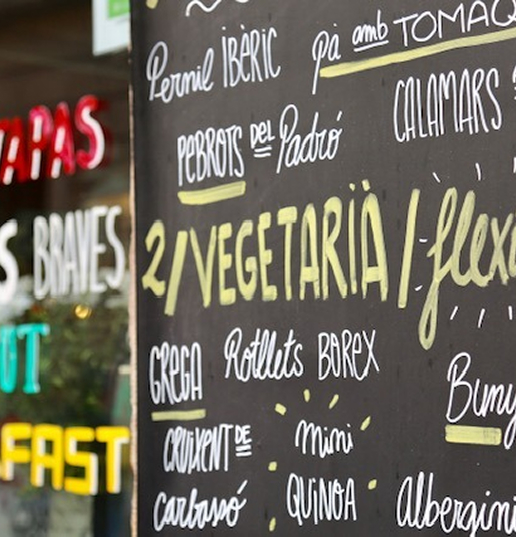 Pernil IBÈRIC
pà amb TOMAQ
CALAMARS
PEBROTS DEL Padró
TAPAS
S BRAVES
2/VEGETARIÀ/flexi
UT
GREGA
Rotllets BOREX
Buny
FAST
CRUIXENT DE
Carbassó
mini
QUINOA
Albergini